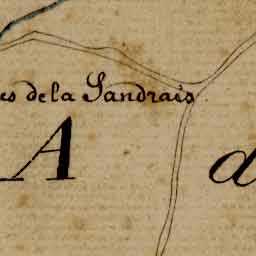 es de la Sandrais
A d